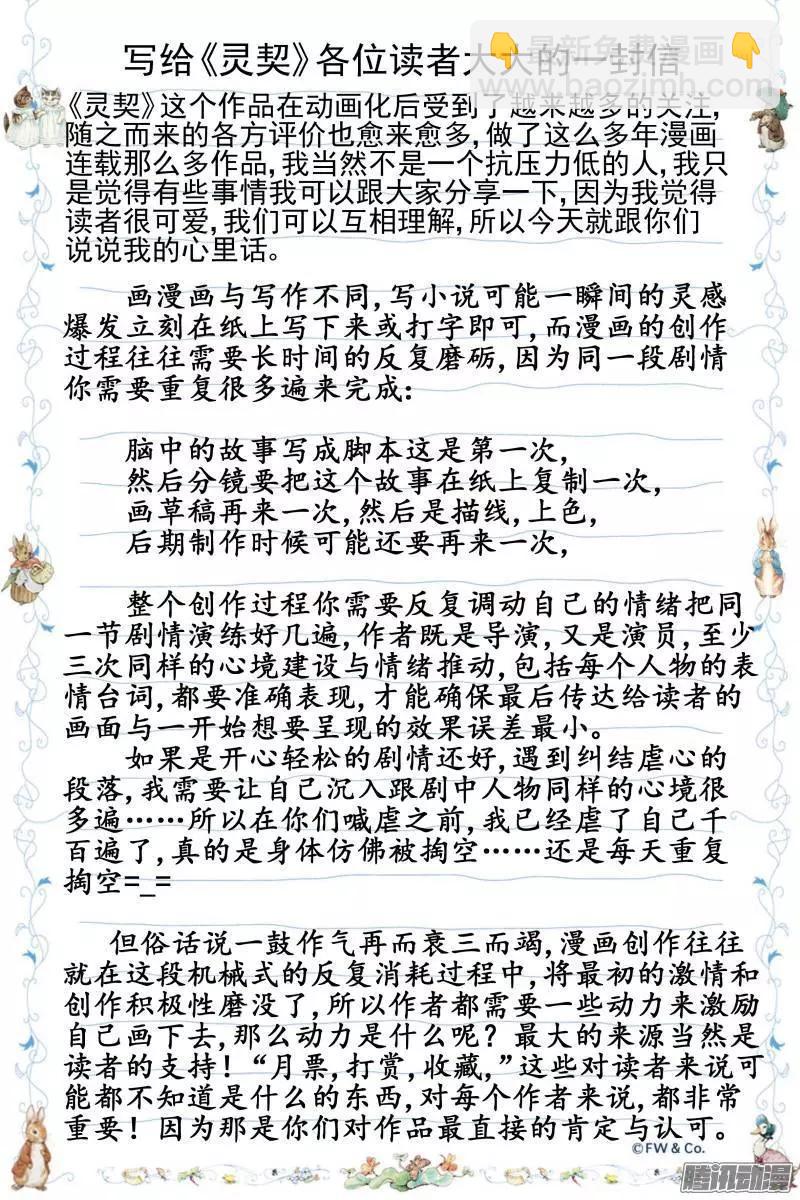 写给《灵契》各位读者大大的一封信
最新免费漫画
www.baozimh.com
《灵契》这个作品在动画化后受到了越来越多的关注,
随之而来的各方评价也愈来愈多,做了这么多年漫画
连载那么多作品,我当然不是一个抗压力低的人,我只
是觉得有些事情我可以跟大家分享一下,因为我觉得
读者很可爱,我们可以互相理解,所以今天就跟你们
说说我的心里话。
画漫画与写作不同,写小说可能一瞬间的灵感
爆发立刻在纸上写下来或打字即可,而漫画的创作
过程往往需要长时间的反复磨砺,因为同一段剧情
你需要重复很多遍来完成:
脑中的故事写成脚本这是第一次,
然后分镜要把这个故事在纸上复制一次,
画草稿再来一次,然后是描线,上色,
后期制作时候可能还要再来一次,
整个创作过程你需要反复调动自己的情绪把同
一节剧情演练好几遍,作者既是导演,又是演员,至少
三次同样的心境建设与情绪推动,包括每个人物的表
情台词,都要准确表现,才能确保最后传达给读者的
画面与一开始想要呈现的效果误差最小。
如果是开心轻松的剧情还好,遇到纠结虐心的
段落,我需要让自己沉入跟剧中人物同样的心境很
多遍……所以在你们喊虐之前,我已经虐了自己千
百遍了,真的是身体仿佛被掏空……还是每天重复
掏空=_=
但俗话说一鼓作气再而衰三而竭,漫画创作往往
就在这段机械式的反复消耗过程中,将最初的激情和
创作积极性磨没了,所以作者都需要一些动力来激励
自己画下去,那么动力是什么呢？最大的来源当然是
读者的支持！“月票,打赏,收藏,”这些对读者来说可
能都不知道是什么的东西,对每个作者来说,都非常
重要！因为那是你们对作品最直接的肯定与认可。
©FW & Co.
腾讯动漫